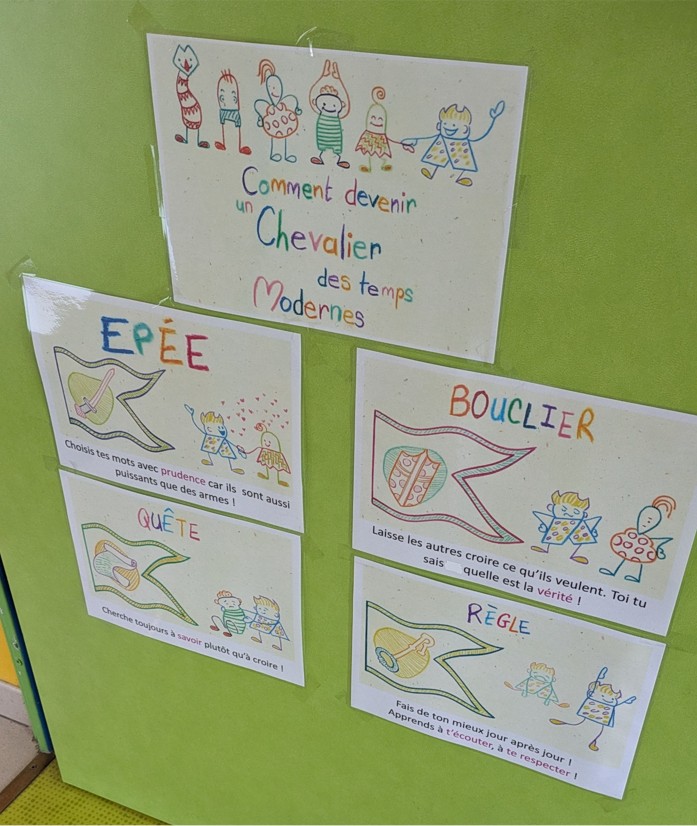 Comment devenir
un
Chevalier
des temps
Modernes
EPÉE
Choisis tes mots avec prudence car ils sont aussi
puissants que des armes !
BOUCLIER
Laisse les autres croire ce qu'ils veulent. Toi tu
sais quelle est la vérité !
QUÊTE
Cherche toujours à savoir plutôt qu'à croire !
RÈGLE
Fais de ton mieux jour après jour !
Apprends à t'écouter, à te respecter !